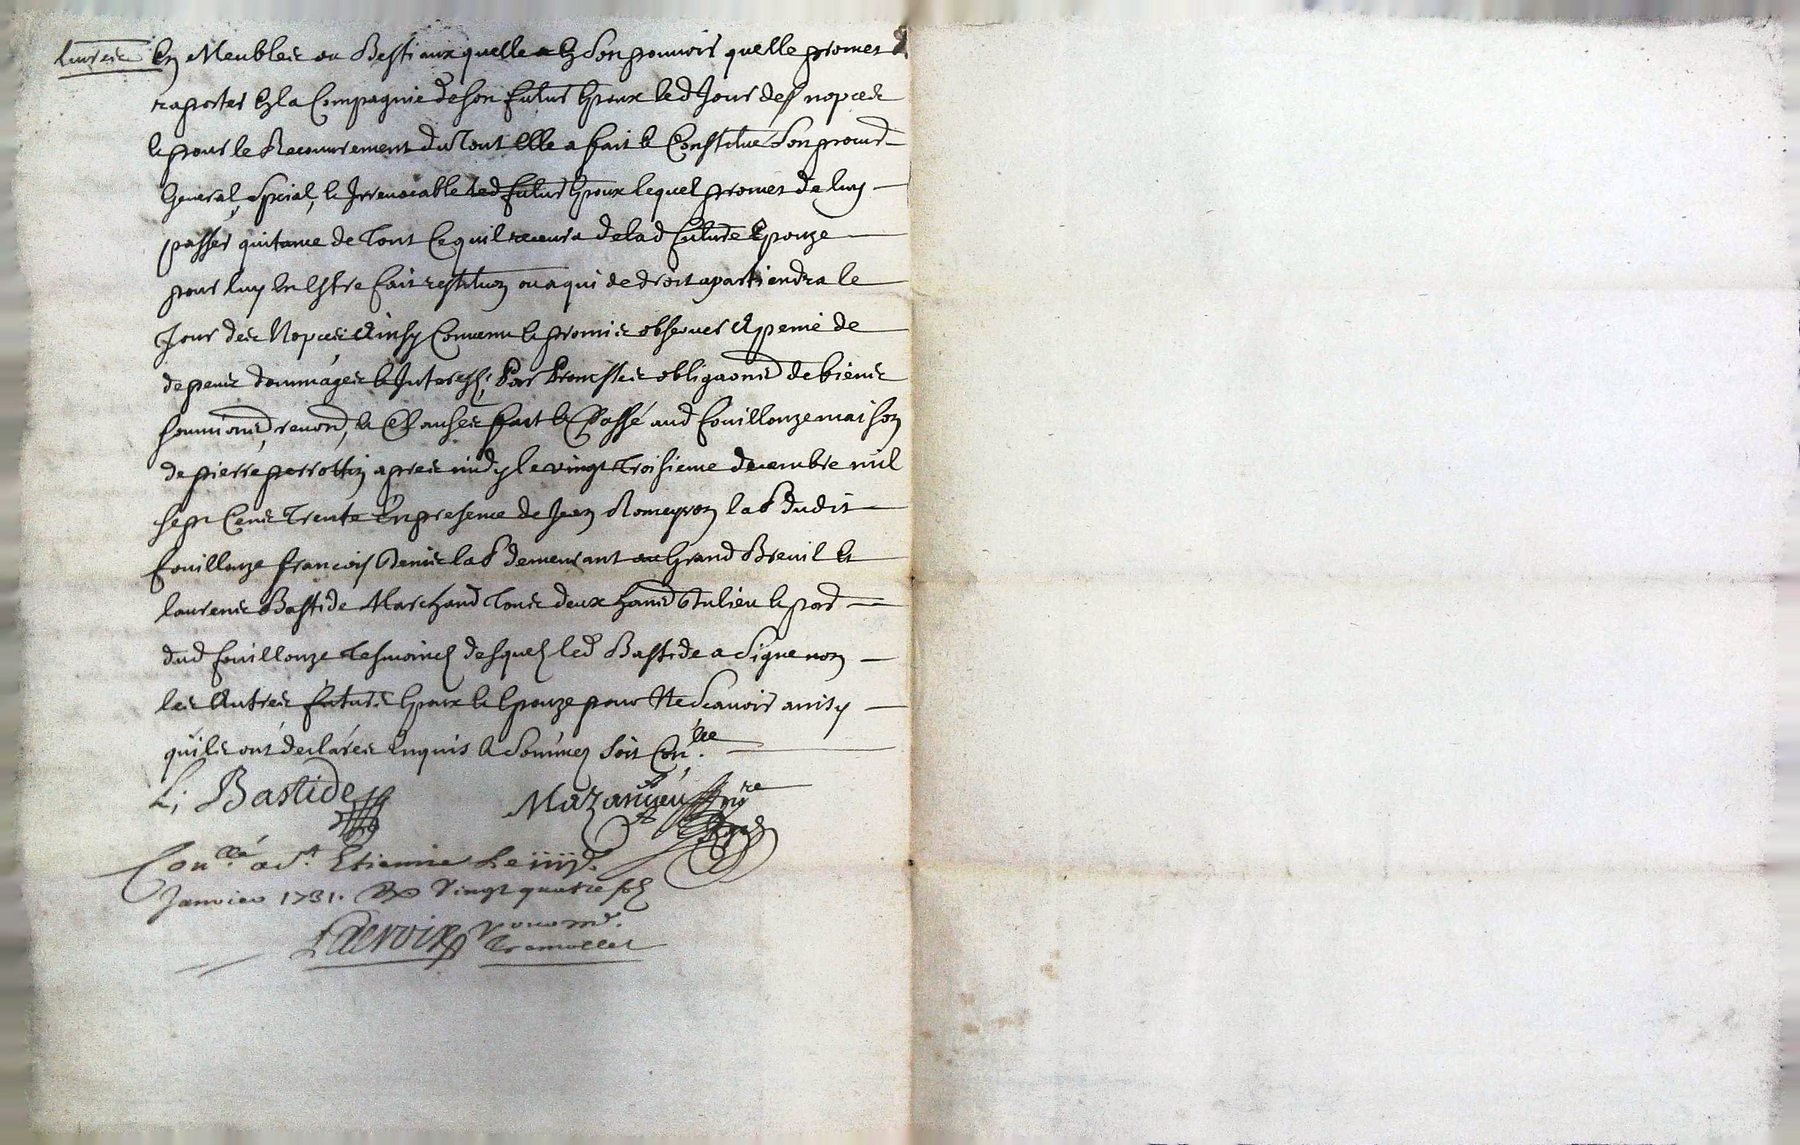 livres En Meubles ou Bestiaux quelle a En Son pouvoir quelle promet
raporter En la Compagnie de son futur Epoux led Jour des nopces
Et pour le Recouvrement du Tout Elle a fait Et Constitue Son procur
General, Special, Et Irrevocable led futur Epoux lequel promet de luy
passer quitance de Tout Ce quil recevra de lad future Epouze
pour luy En Estre fait restituon ou a qui de droit apartiendra le
Jour des Nopces Ainsy Convenu Et promis observer A peine de
depens dommages Et Interests, Par Promesses obligaons de biens
soumions, renons, Et Clauses fait Et Passé aud fouillouze maison
de pierre perrottin apres midy le vingt Troisieme decembre mil
sept Cens Trente En presence de Jean Romeyron lab dudit
fouillouze françois Denis lab demeurant au Grand Breuil Et
laurens Bastide Marchand Tous deux hans St Julien
dud fouillouze Tesmoins desquels led Bastide a Signe non
les Autres futurs Epoux Et Epouze pour Ne Scavoir
quils ont declarés Enquis Et Sommés Soit Conlle.
L; Bastide Mazancieu nore
Conllé a St Etienne Le iiij
Janvier 1731. Rx Vingt quatre sols
Lacroix pour mr.
Tramollet